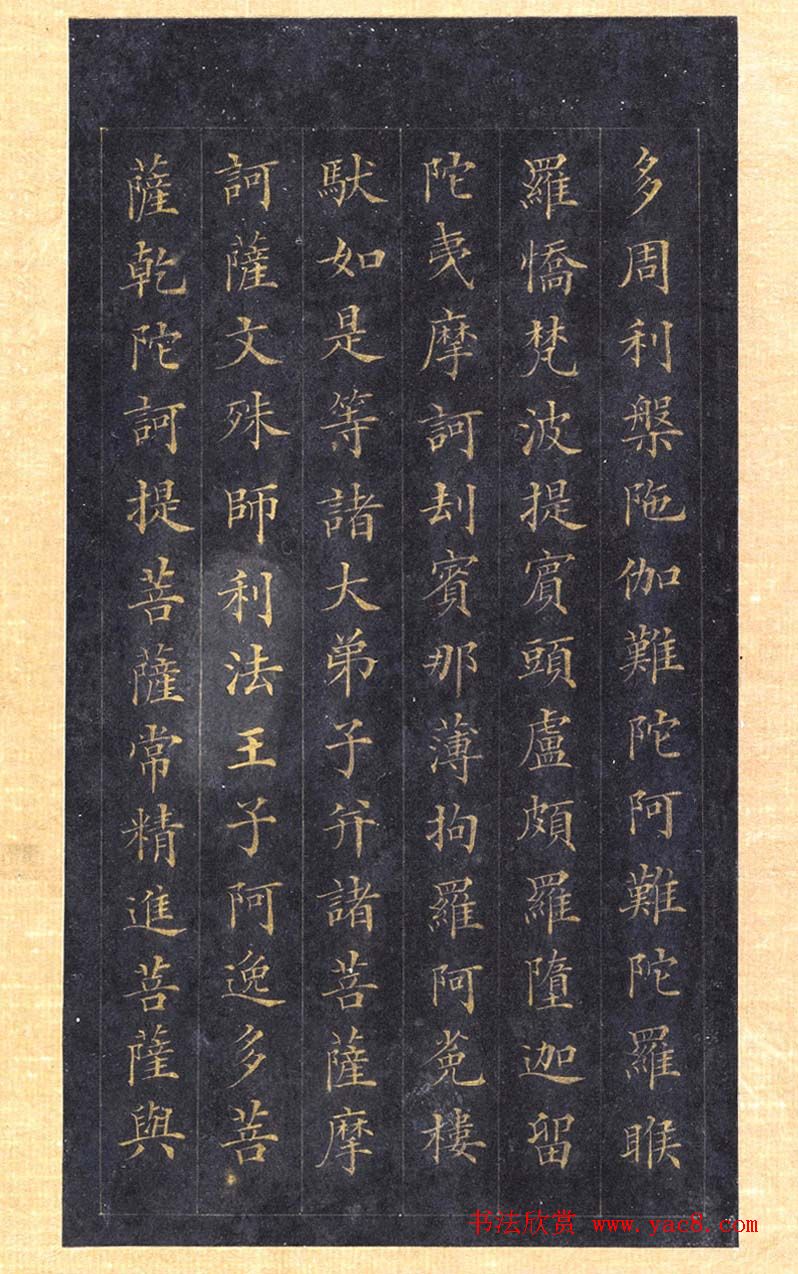 多周利槃陁伽難陀阿難陀羅睺
羅憍梵波提賓頭盧頗羅墮迦留
陀夷摩訶刦賓那薄拘羅阿㝹樓
馱如是等諸大弟子并諸菩薩摩
訶薩文殊師利法王子阿逸多菩
薩乾陀訶提菩薩常精進菩薩與
书法欣赏 www.yac8.com